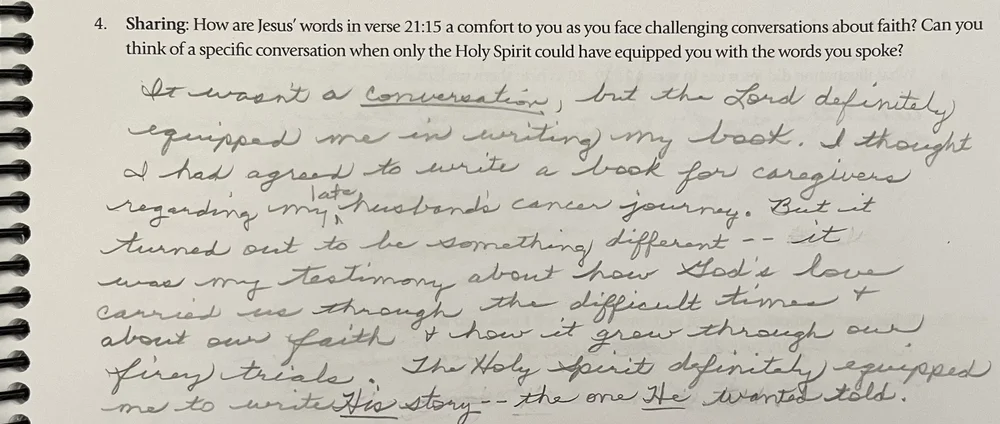 4. Sharing: How are Jesus' words in verse 21:15 a comfort to you as you face challenging conversations about faith? Can you
think of a specific conversation when only the Holy Spirit could have equipped you with the words you spoke?
It wasn't a conversation, but the Lord definitely
equipped me in writing my book. I thought
I had agreed to write a book for caregivers
regarding my late husband's cancer journey. But it
turned out to be something different -- it
was my testimony about how God's love
carried us through the difficult times +
about our faith + how it grew through our
firey trials. The Holy Spirit definitely equipped
me to write His story -- the one He wanted told.